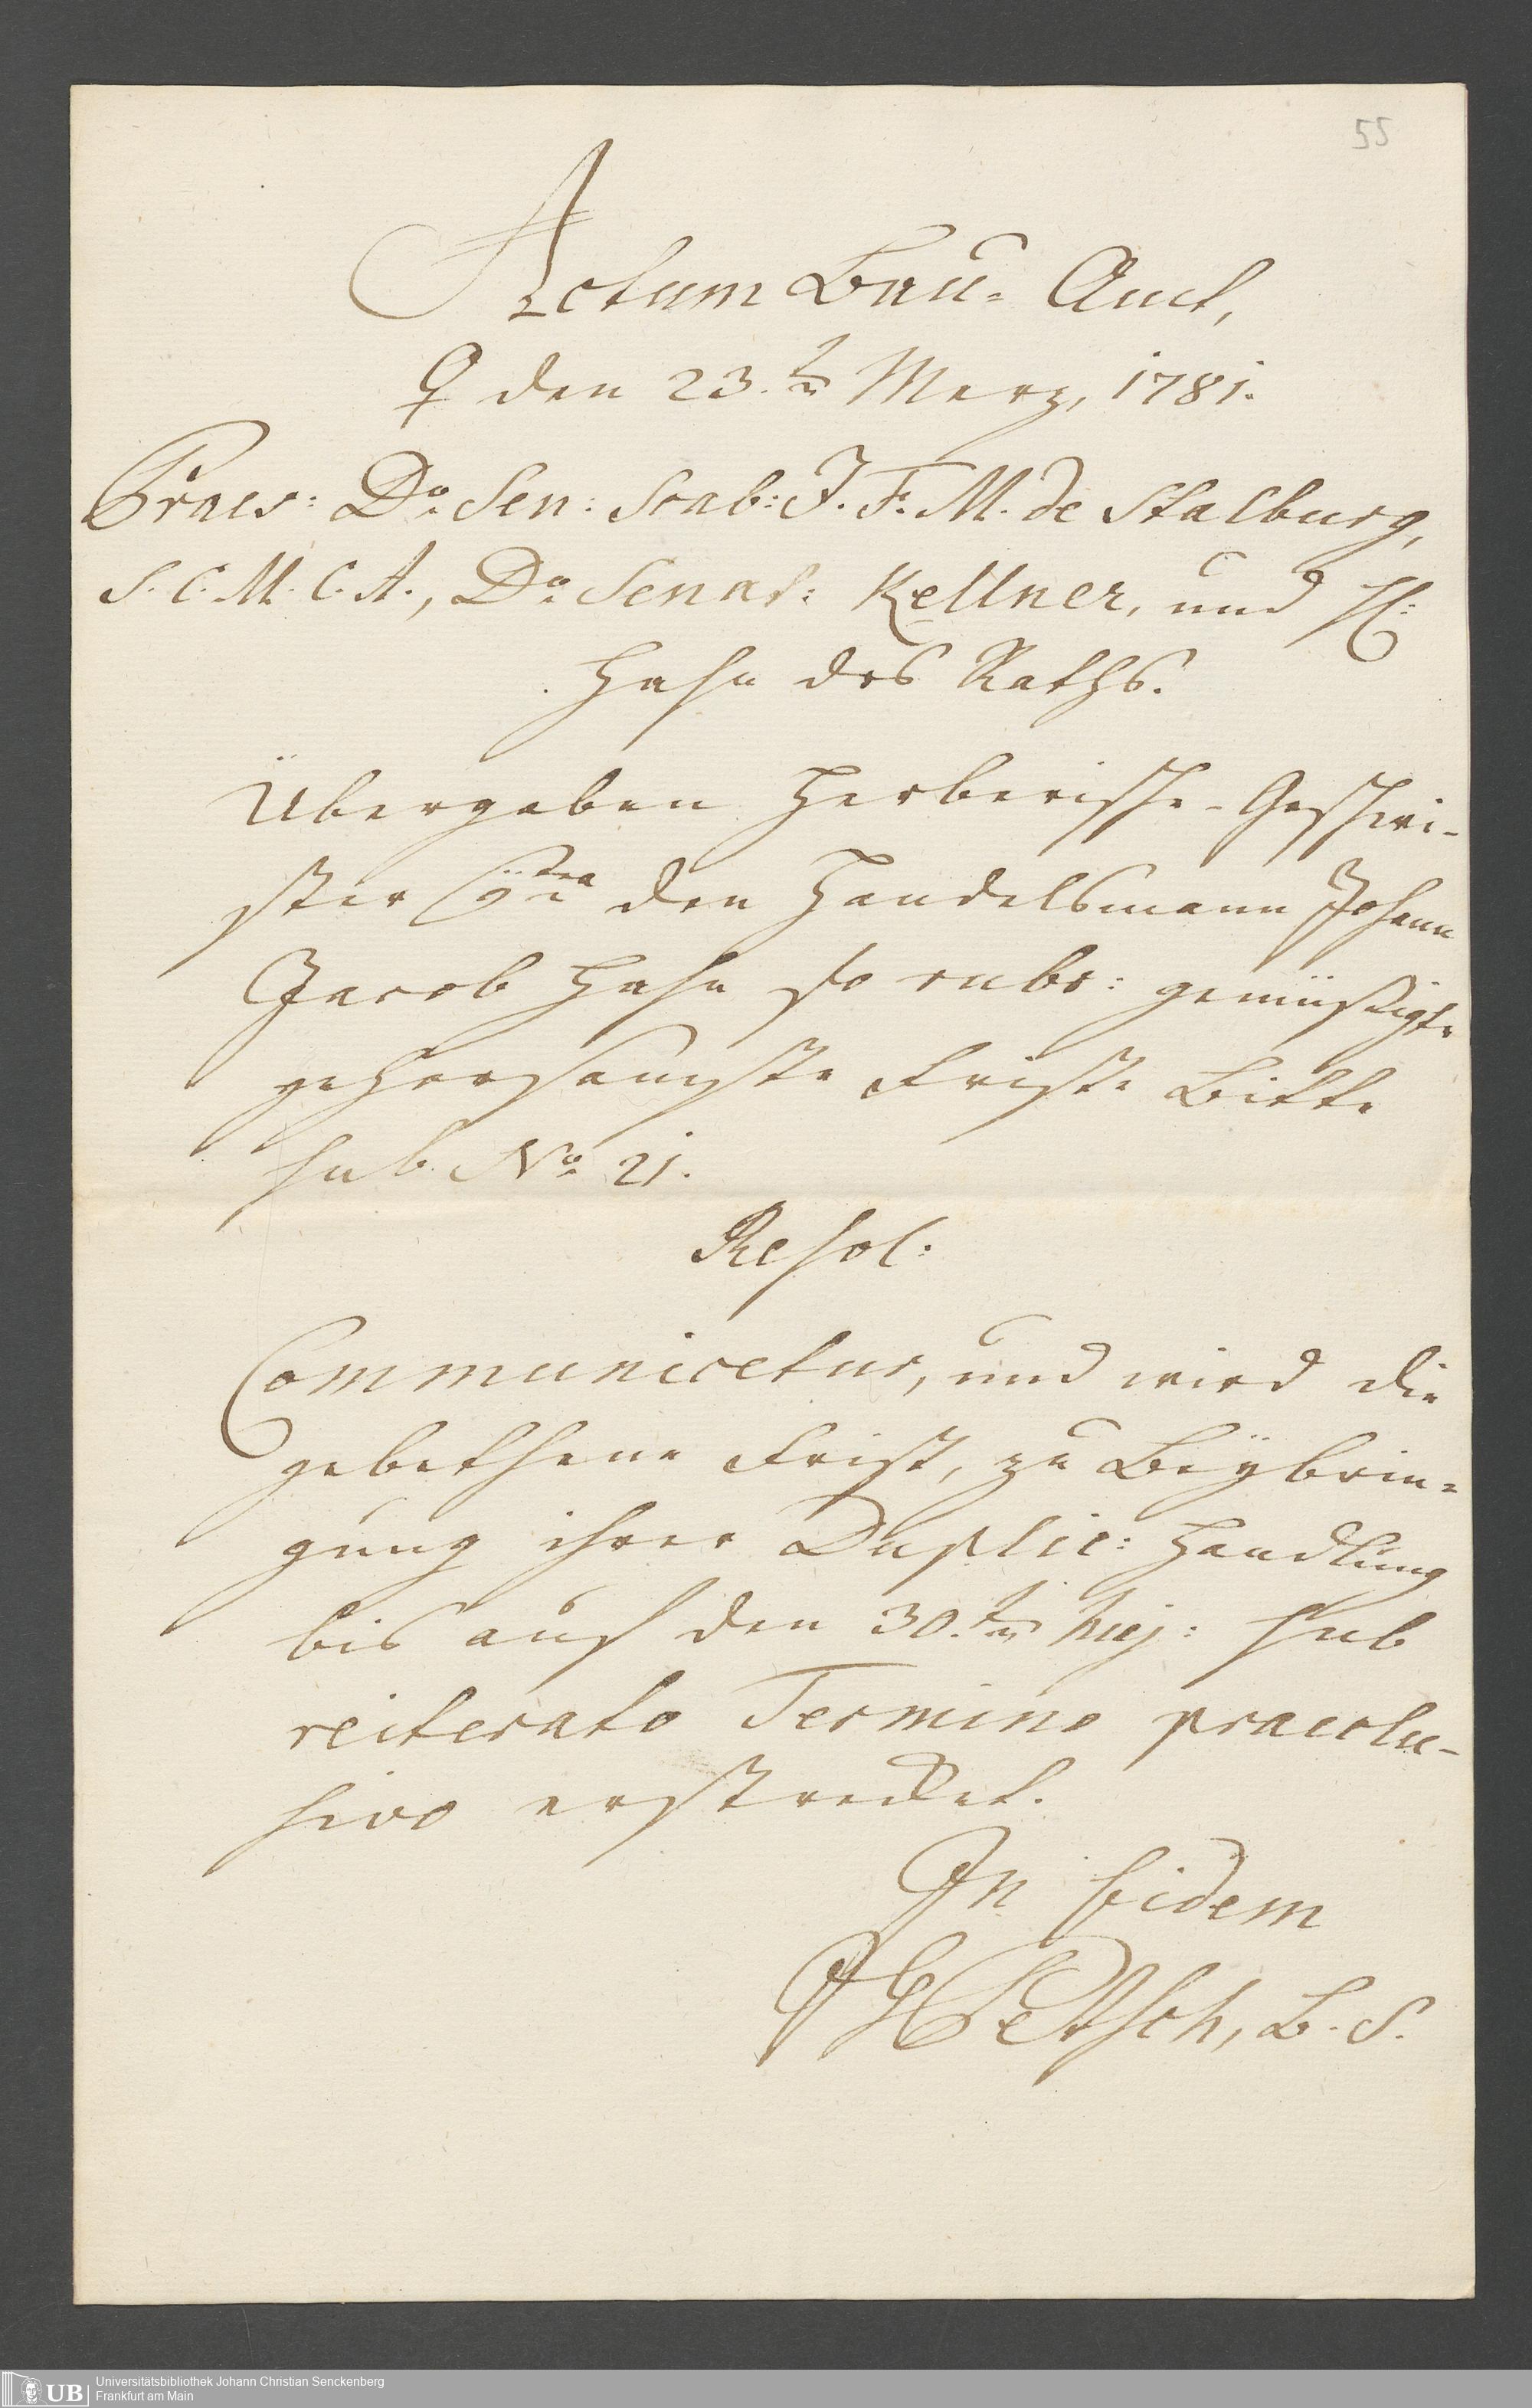 55
Actum Bau- Amt,
♀ den 23.ten Merz, 1781.
Praes: Do. Sen: Scab: J. F. M. de Stalburg,
S. C. M. C. A., Do. Senat: Kellner, und H:
Hahn des Raths.
Übergaben Herberische-Geschwi-
ster Ctra den Handelsmann Johann
Jacob Hahn so rubr: gemüßigte
gehorsamste Frist Bitte
sub No. 21.
Resol:
Communicetur, und wird die
gebethene Frist, zu Beÿbrin-
gung ihrer Duplic: Handlung
bis auf den 30.ten huj: sub
reiterato Termino praeclu-
sivo erstrecket.
In fidem
Petsch, B. S.
UB
Universitätsbibliothek Johann Christian Senckenberg
Frankfurt am Main